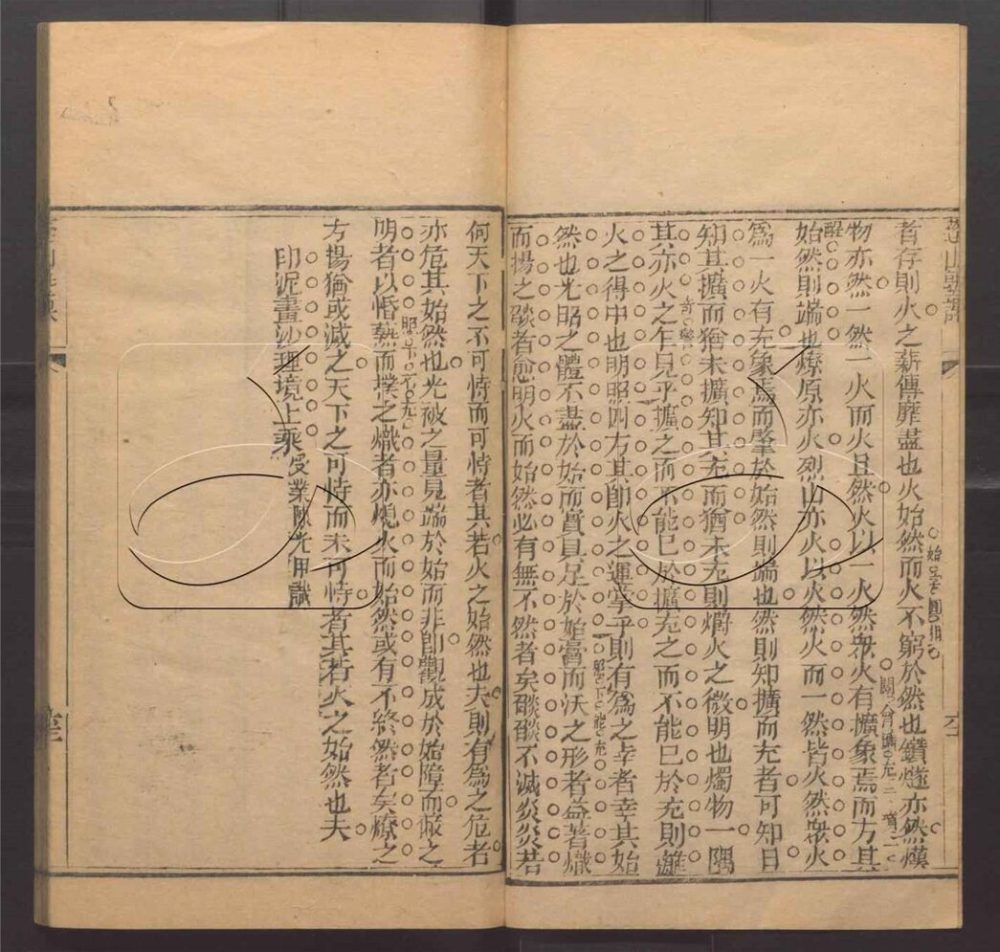 者存則火之薪傳靡盡也火始然而火不窮於然也鑽燧亦然爇
物亦然一然一火而火且然火以一火然衆火有擴象焉而方其
始然則端也燎原亦火烈山亦火以火然火而一然皆火然衆火
爲一火有充象焉而肇於始然則端也然則知擴而充者可知日
知其擴而猶未擴知其充而猶未充則爝火之微明也燭物一隅
其亦火之乍見乎擴之而不能已於擴充之而不能已於充則離
火之得中也明照四方其卽火之運掌乎則有爲之幸者幸其始
然也光昭之體不盡於始而實具足於始膏而沃之形者益著熾
而揚之燄者愈明火而始然必有無不然者矣燄燄不滅炎炎若
何天下之不可恃而可恃者其若火之始然也夫則有爲之危者
亦危其始然也光被之量見端於始而非卽觀成於始障而蔽之
明者以惛熱而撲之熾者亦熄火而始然或有不終然者矣燎之
方揚猶或滅之天下之可恃而未可恃者其若火之始然也夫
印泥畫沙理境上乘受業陳光甲識